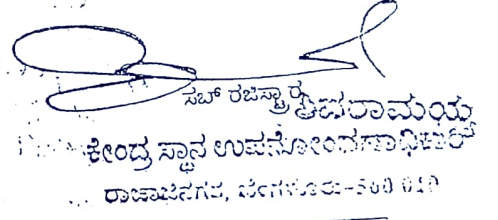 ಸಬ್ ರಜಿಸ್ಟ್ರಾರ್
ಕೇಂದ್ರ ಸ್ಥಾನ ಉಪನೋಂದಣಾಧಿಕಾರಿ
ರಾಜಾಜಿನಗರ, ಬೆಂಗಳೂರು-560 010